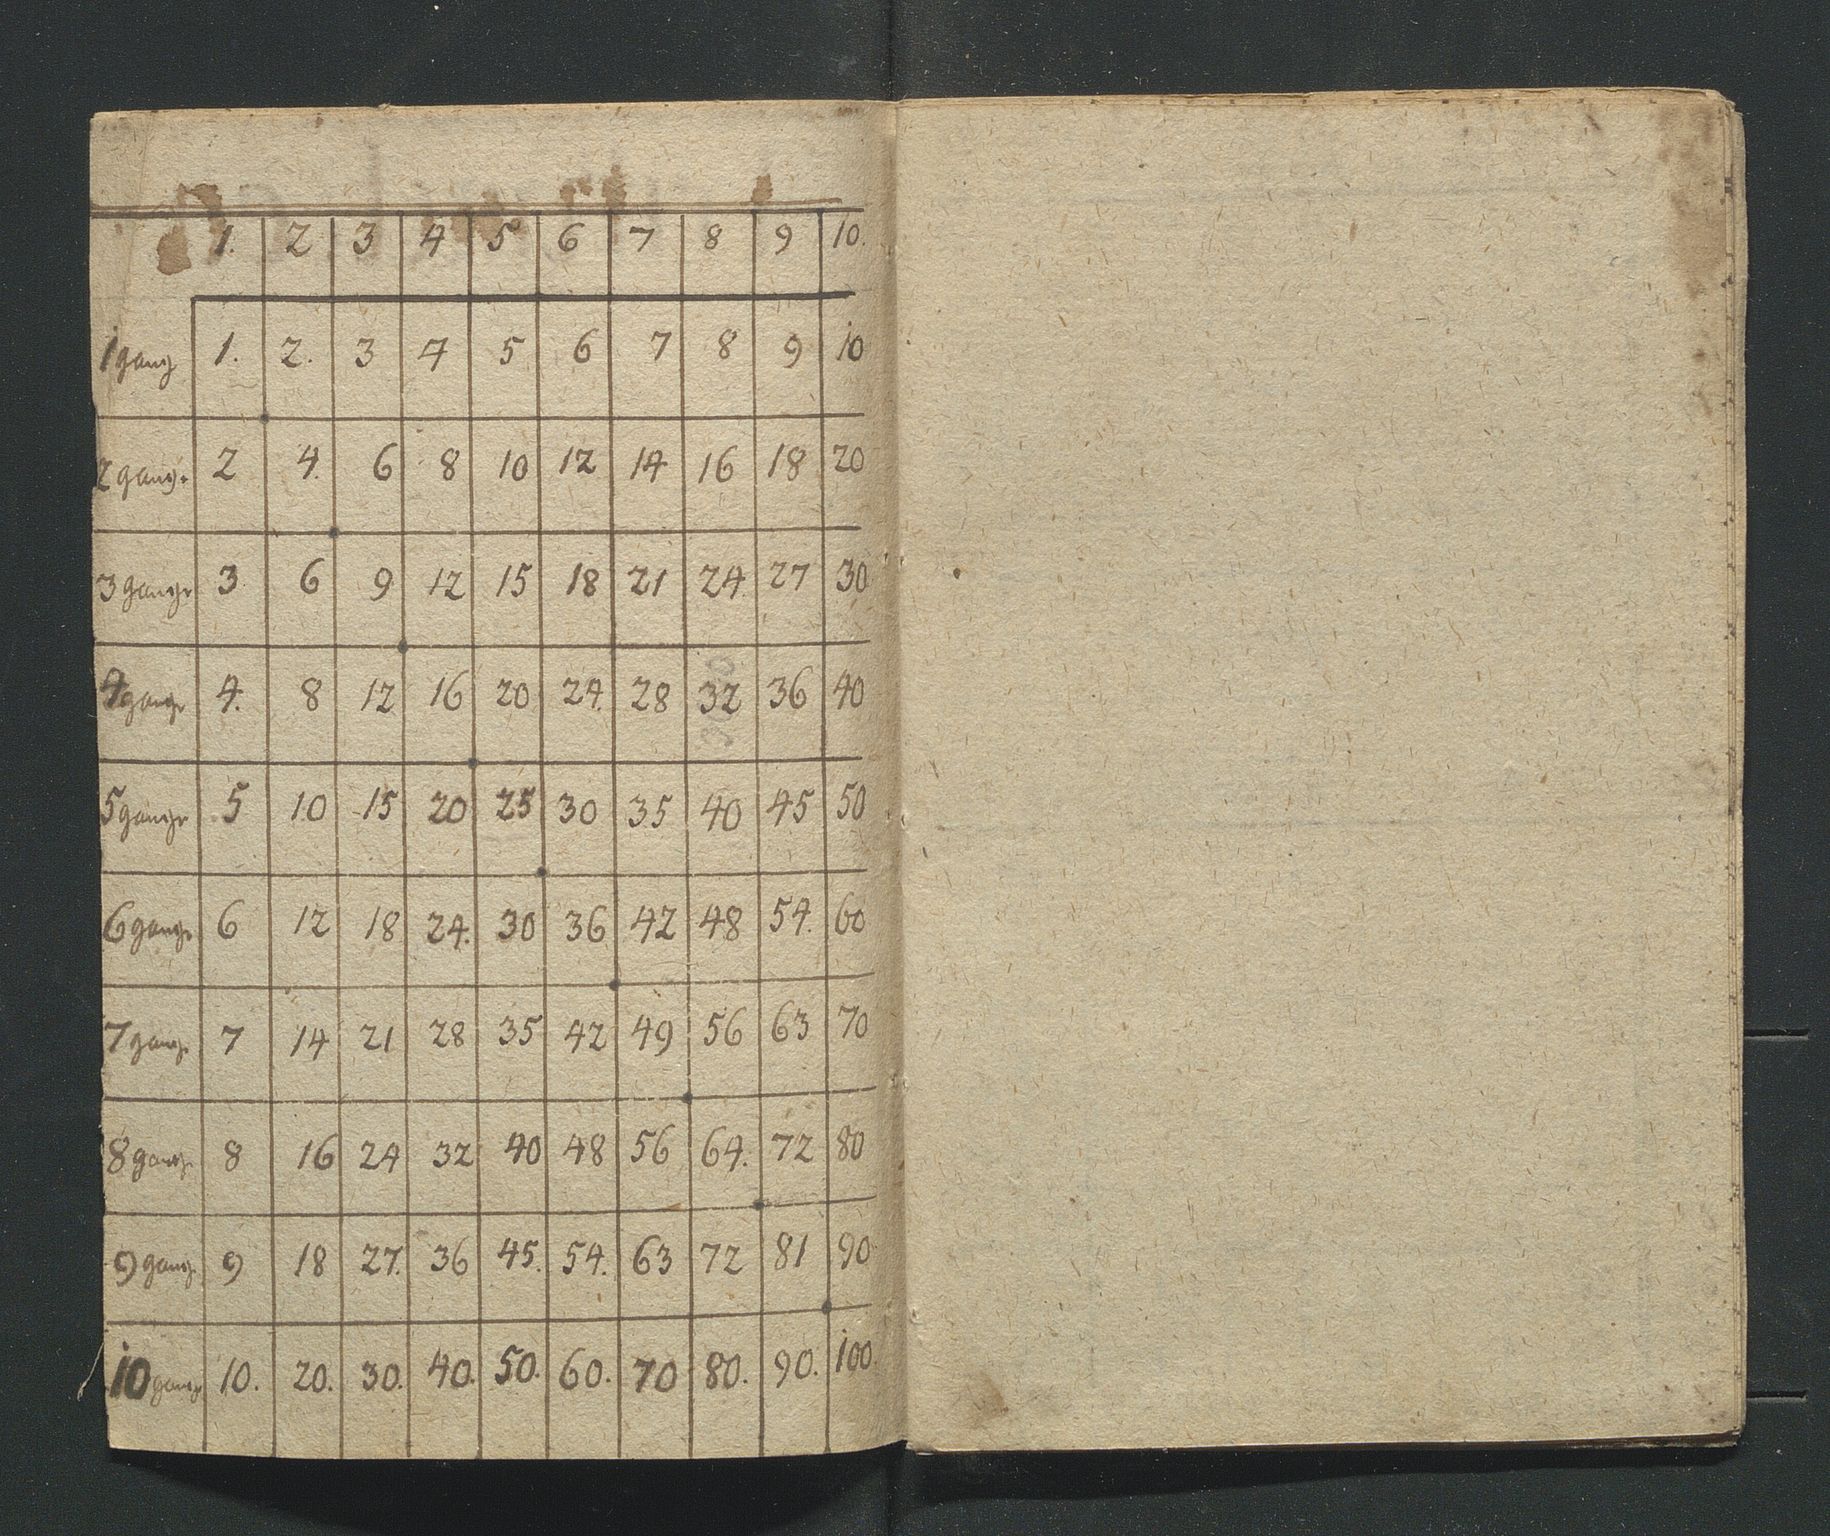 1. 2 3 4 5 6 7 8 9 10.
1 gang 1. 2. 3 4 5 6 7 8 9 10
2 gange 2 4. 6 8 10 12 14 16 18 20
3 gange 3 6 9 12 15 18 21 24. 27 30
4 gange 4. 8 12 16 20 24. 28 32 36 40
5 gange 5 10 15 20 25 30 35 40 45 50
6 gange 6 12 18 24. 30 36 42 48 54. 60
7 gange 7 14 21 28 35 42 49 56 63 70
8 gange 8 16 24 32 40 48 56 64. 72 80
9 gange 9 18 27. 36 45. 54. 63 72 81 90
10 gange 10. 20. 30. 40. 50. 60. 70 80. 90. 100.